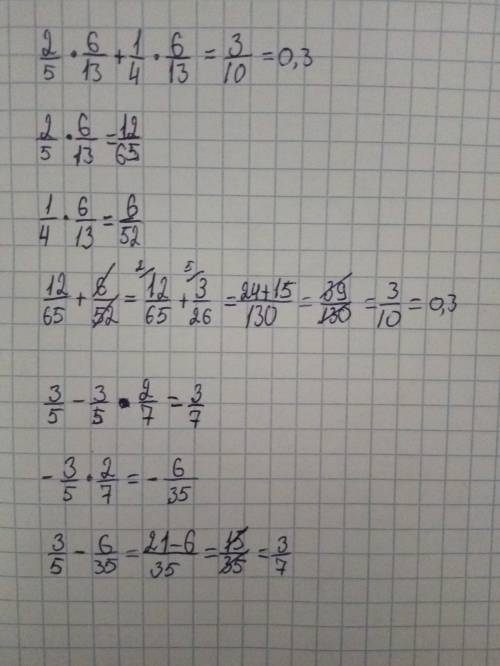 2/5 · 6/13 + 1/4 · 6/13 = 3/10 = 0,3
2/5 · 6/13 = 12/65
1/4 · 6/13 = 6/52
12/65 + 6/52 = 2/ 12/65 + 5/ 3/26 = 24+15/130 = 39/130 = 3/10 = 0,3
3/5 - 3/5 · 2/7 = 3/7
- 3/5 · 2/7 = - 6/35
3/5 - 6/35 = 21-6/35 = 15/35 = 3/7